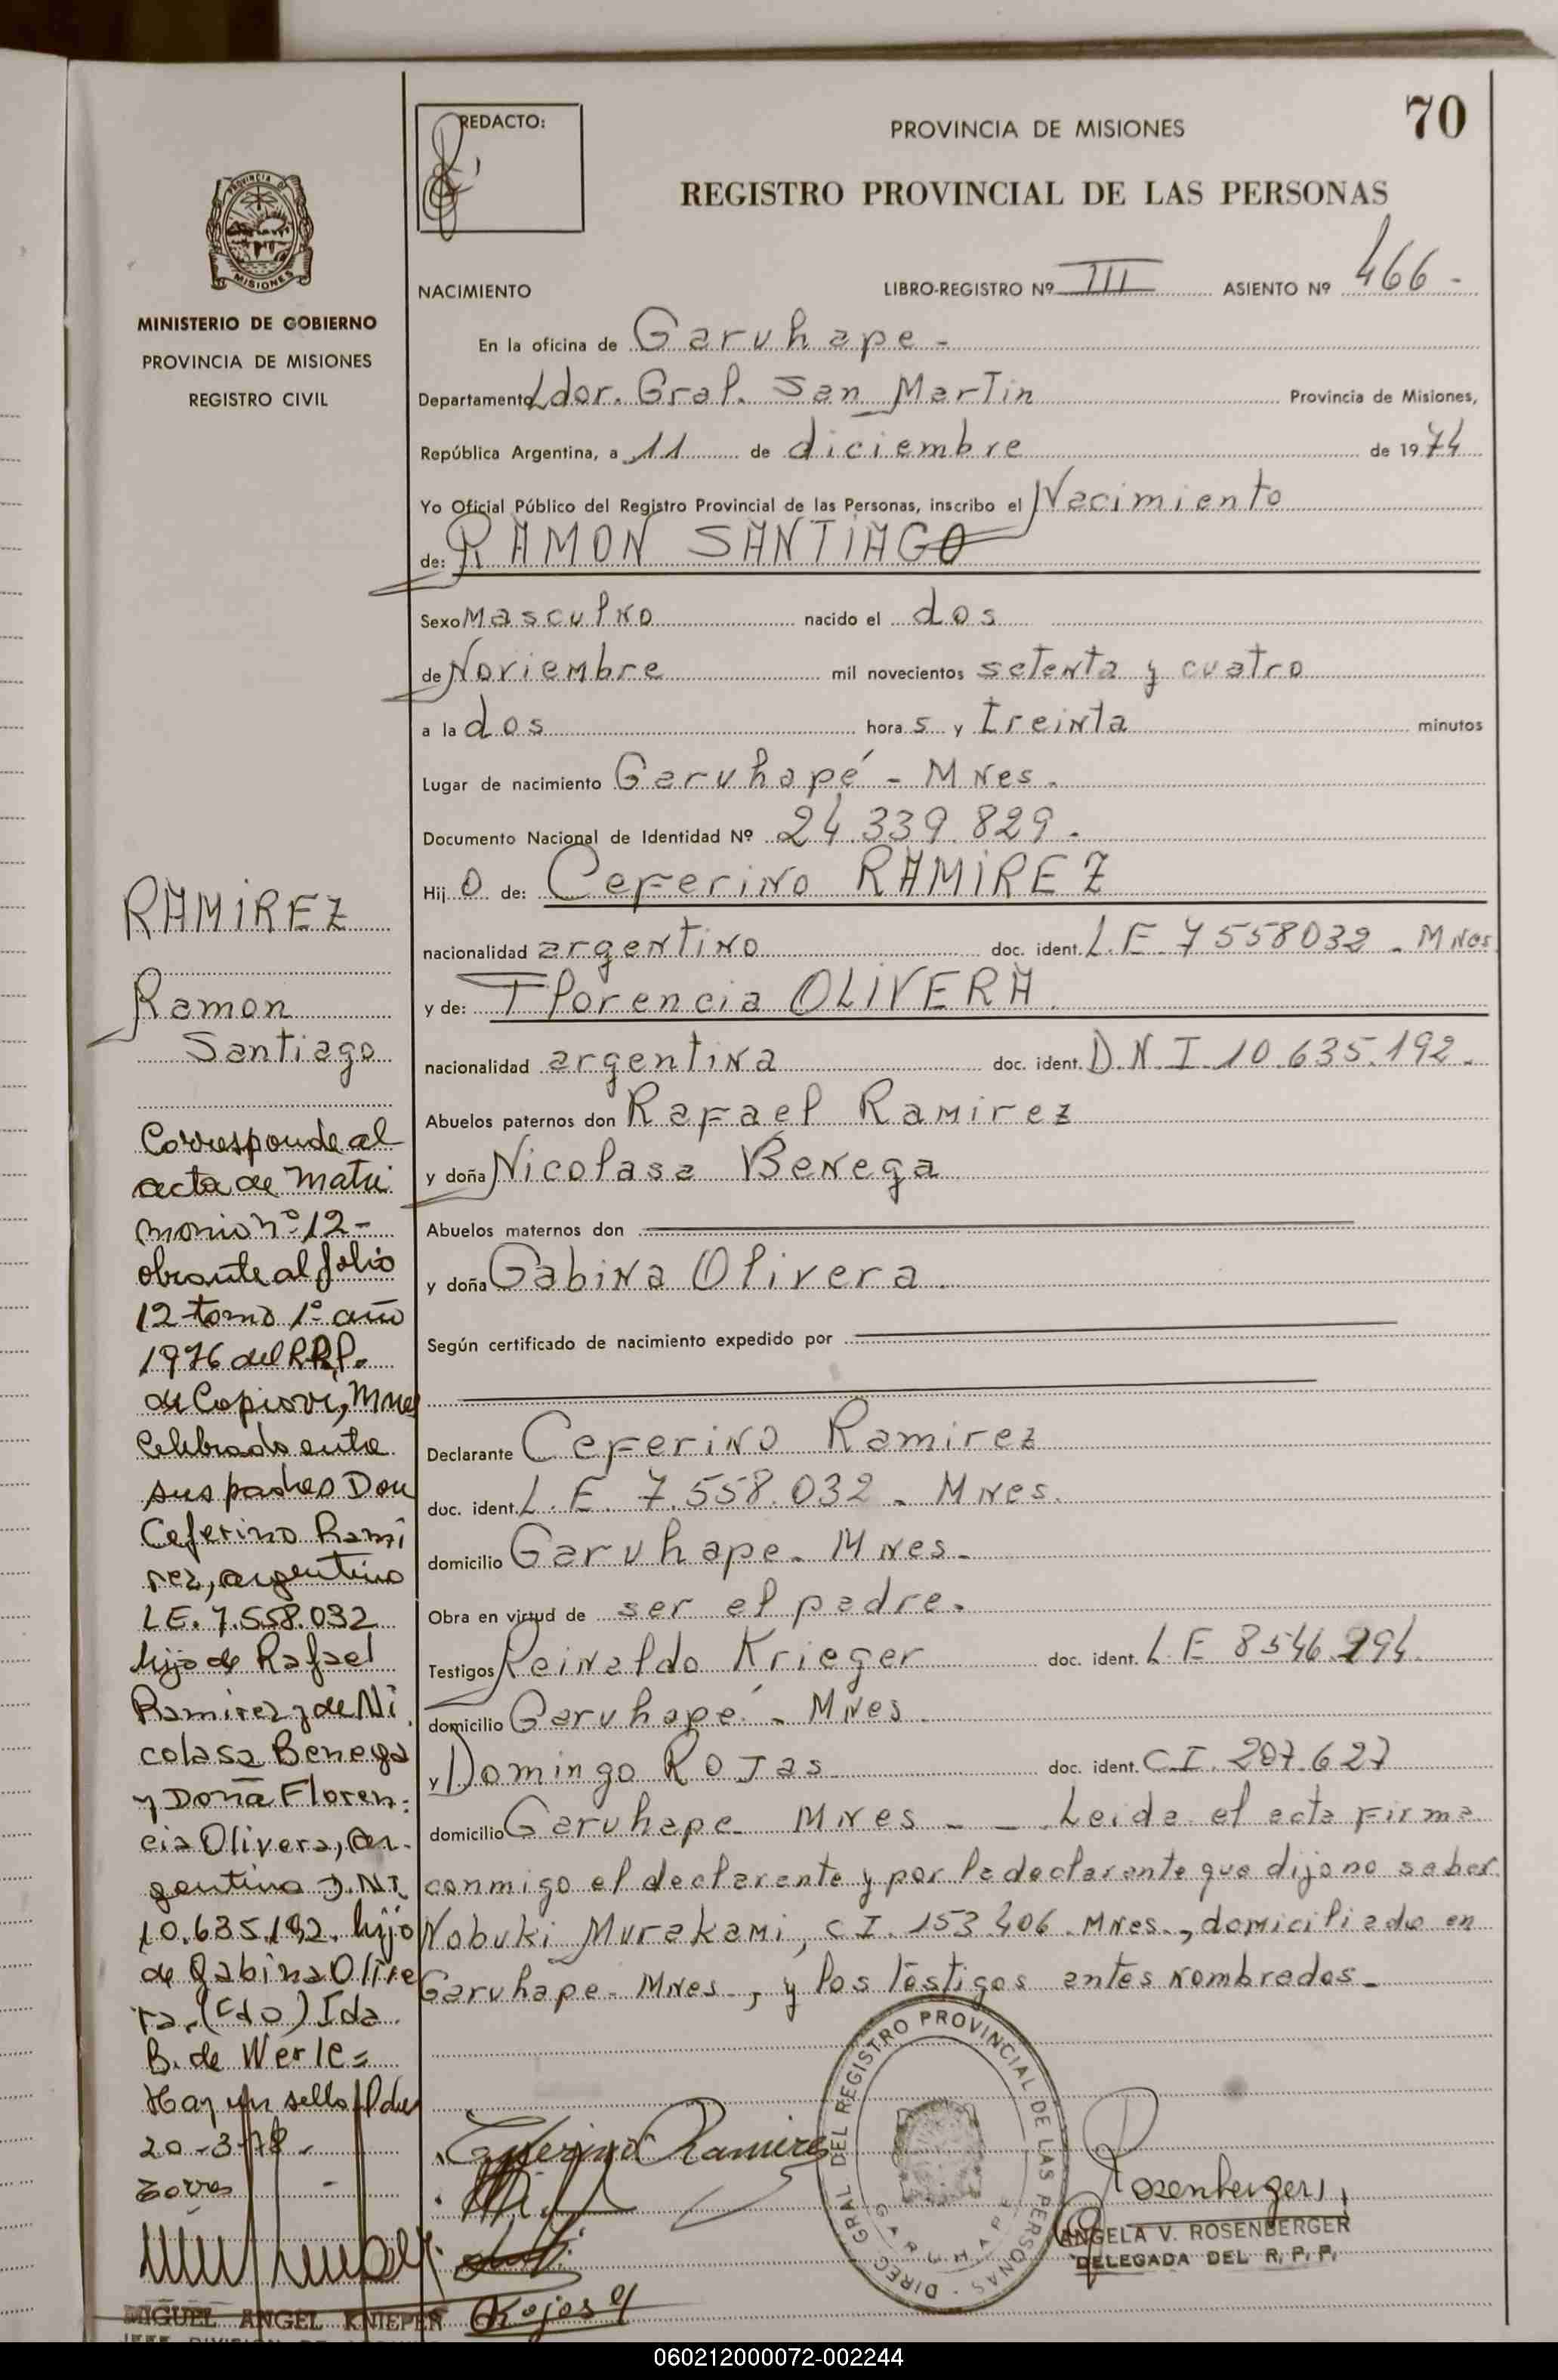 70
REDACTO:
PROVINCIA DE MISIONES
REGISTRO PROVINCIAL DE LAS PERSONAS
PROVINCIA DE
MISIONES
MINISTERIO DE GOBIERNO
PROVINCIA DE MISIONES
REGISTRO CIVIL
NACIMIENTO LIBRO-REGISTRO Nº III ASIENTO Nº 466 -
En la oficina de Garuhape -
Departamento Ldor. Gral. San Martin Provincia de Misiones,
República Argentina, a 11 de diciembre de 1974
Yo Oficial Público del Registro Provincial de las Personas, inscribo el Nacimiento
de: RAMON SANTIAGO
Sexo Masculno nacido el dos
de Noviembre mil novecientos setenta y cuatro
a la dos hora s y treinta minutos
Lugar de nacimiento Garuhapé - Mnes.
Documento Nacional de Identidad Nº 24.339.829.
Hij o de: Ceferino RAMIREZ
nacionalidad argentino doc. ident. L.E 7558032 - Mnes
y de: Florencia OLIVERA
nacionalidad argentina doc. ident. D.N.I. 10.635.192.
Abuelos paternos don Rafael Ramirez
y doña Nicolasa Benega
Abuelos maternos don
y doña Gabina Olivera
Según certificado de nacimiento expedido por
Declarante Ceferino Ramirez
doc. ident. L.E. 7.558.032 - Mnes.
domicilio Garuhape - Mnes -
Obra en virtud de ser el padre.
Testigos Reinaldo Krieger doc. ident. L.E 8546.294.
domicilio Garuhapé - Mnes.
y Domingo ROJas doc. ident. C.I. 207.627
domicilio Garuhape Mnes - - Leida el acta firma
conmigo el declarante y por la declarante que dijo no saber
Nobuki Murakami, C.I. 153.406 Mnes., domiciliado en
Garuhape - Mnes -, y los testigos antes nombrados -
RAMIREZ
Ramon
Santiago
Corresponde al
acta de Matri
monio nº 12 -
obrante al folio
12 tomo 1º año
1976 del R.R.P.
de Capiovi, Mnes
Celebrado entre
sus padres Don
Ceferino Rami
rez, argentino
LE. 7.558.032
hijo de Rafael
Ramirez y de Ni
colasa Benega
y Doña Floren-
cia Olivera, ar-
gentina D.NI
10.635.192. hija
de Gabina Olive
ra. (Fdo) Ida
B. de Werle =
Hay un sello
20-3-78.
Ceferino Ramirez
Rojas
DIREC. GRAL. DEL REGISTRO PROVINCIAL DE LAS PERSONAS
GARUHAPE
Rosenberger
ANGELA V. ROSENBERGER
DELEGADA DEL R. P. P.
MIGUEL ANGEL KNIEPER
060212000072-002244